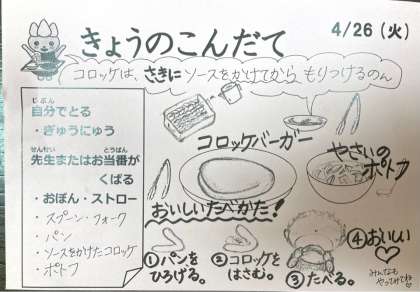 きょうのこんだて
4/26（火）
コロッケは、さきにソースをかけてから もりつけるのん
じぶん
自分でとる
・ぎゅうにゅう
せんせい とうばん
先生またはお当番が
くばる
・おぼん・ストロー
・スプーン・フォーク
・パン
・ソースをかけたコロッケ
・ポトフ
コロックバーガー
やさいの
ポトフ
おいしいたべかた！
①パンを
ひろげる。
②コロックを
はさむ。
③たべる。
④おいしい
みんなも
やってみてね